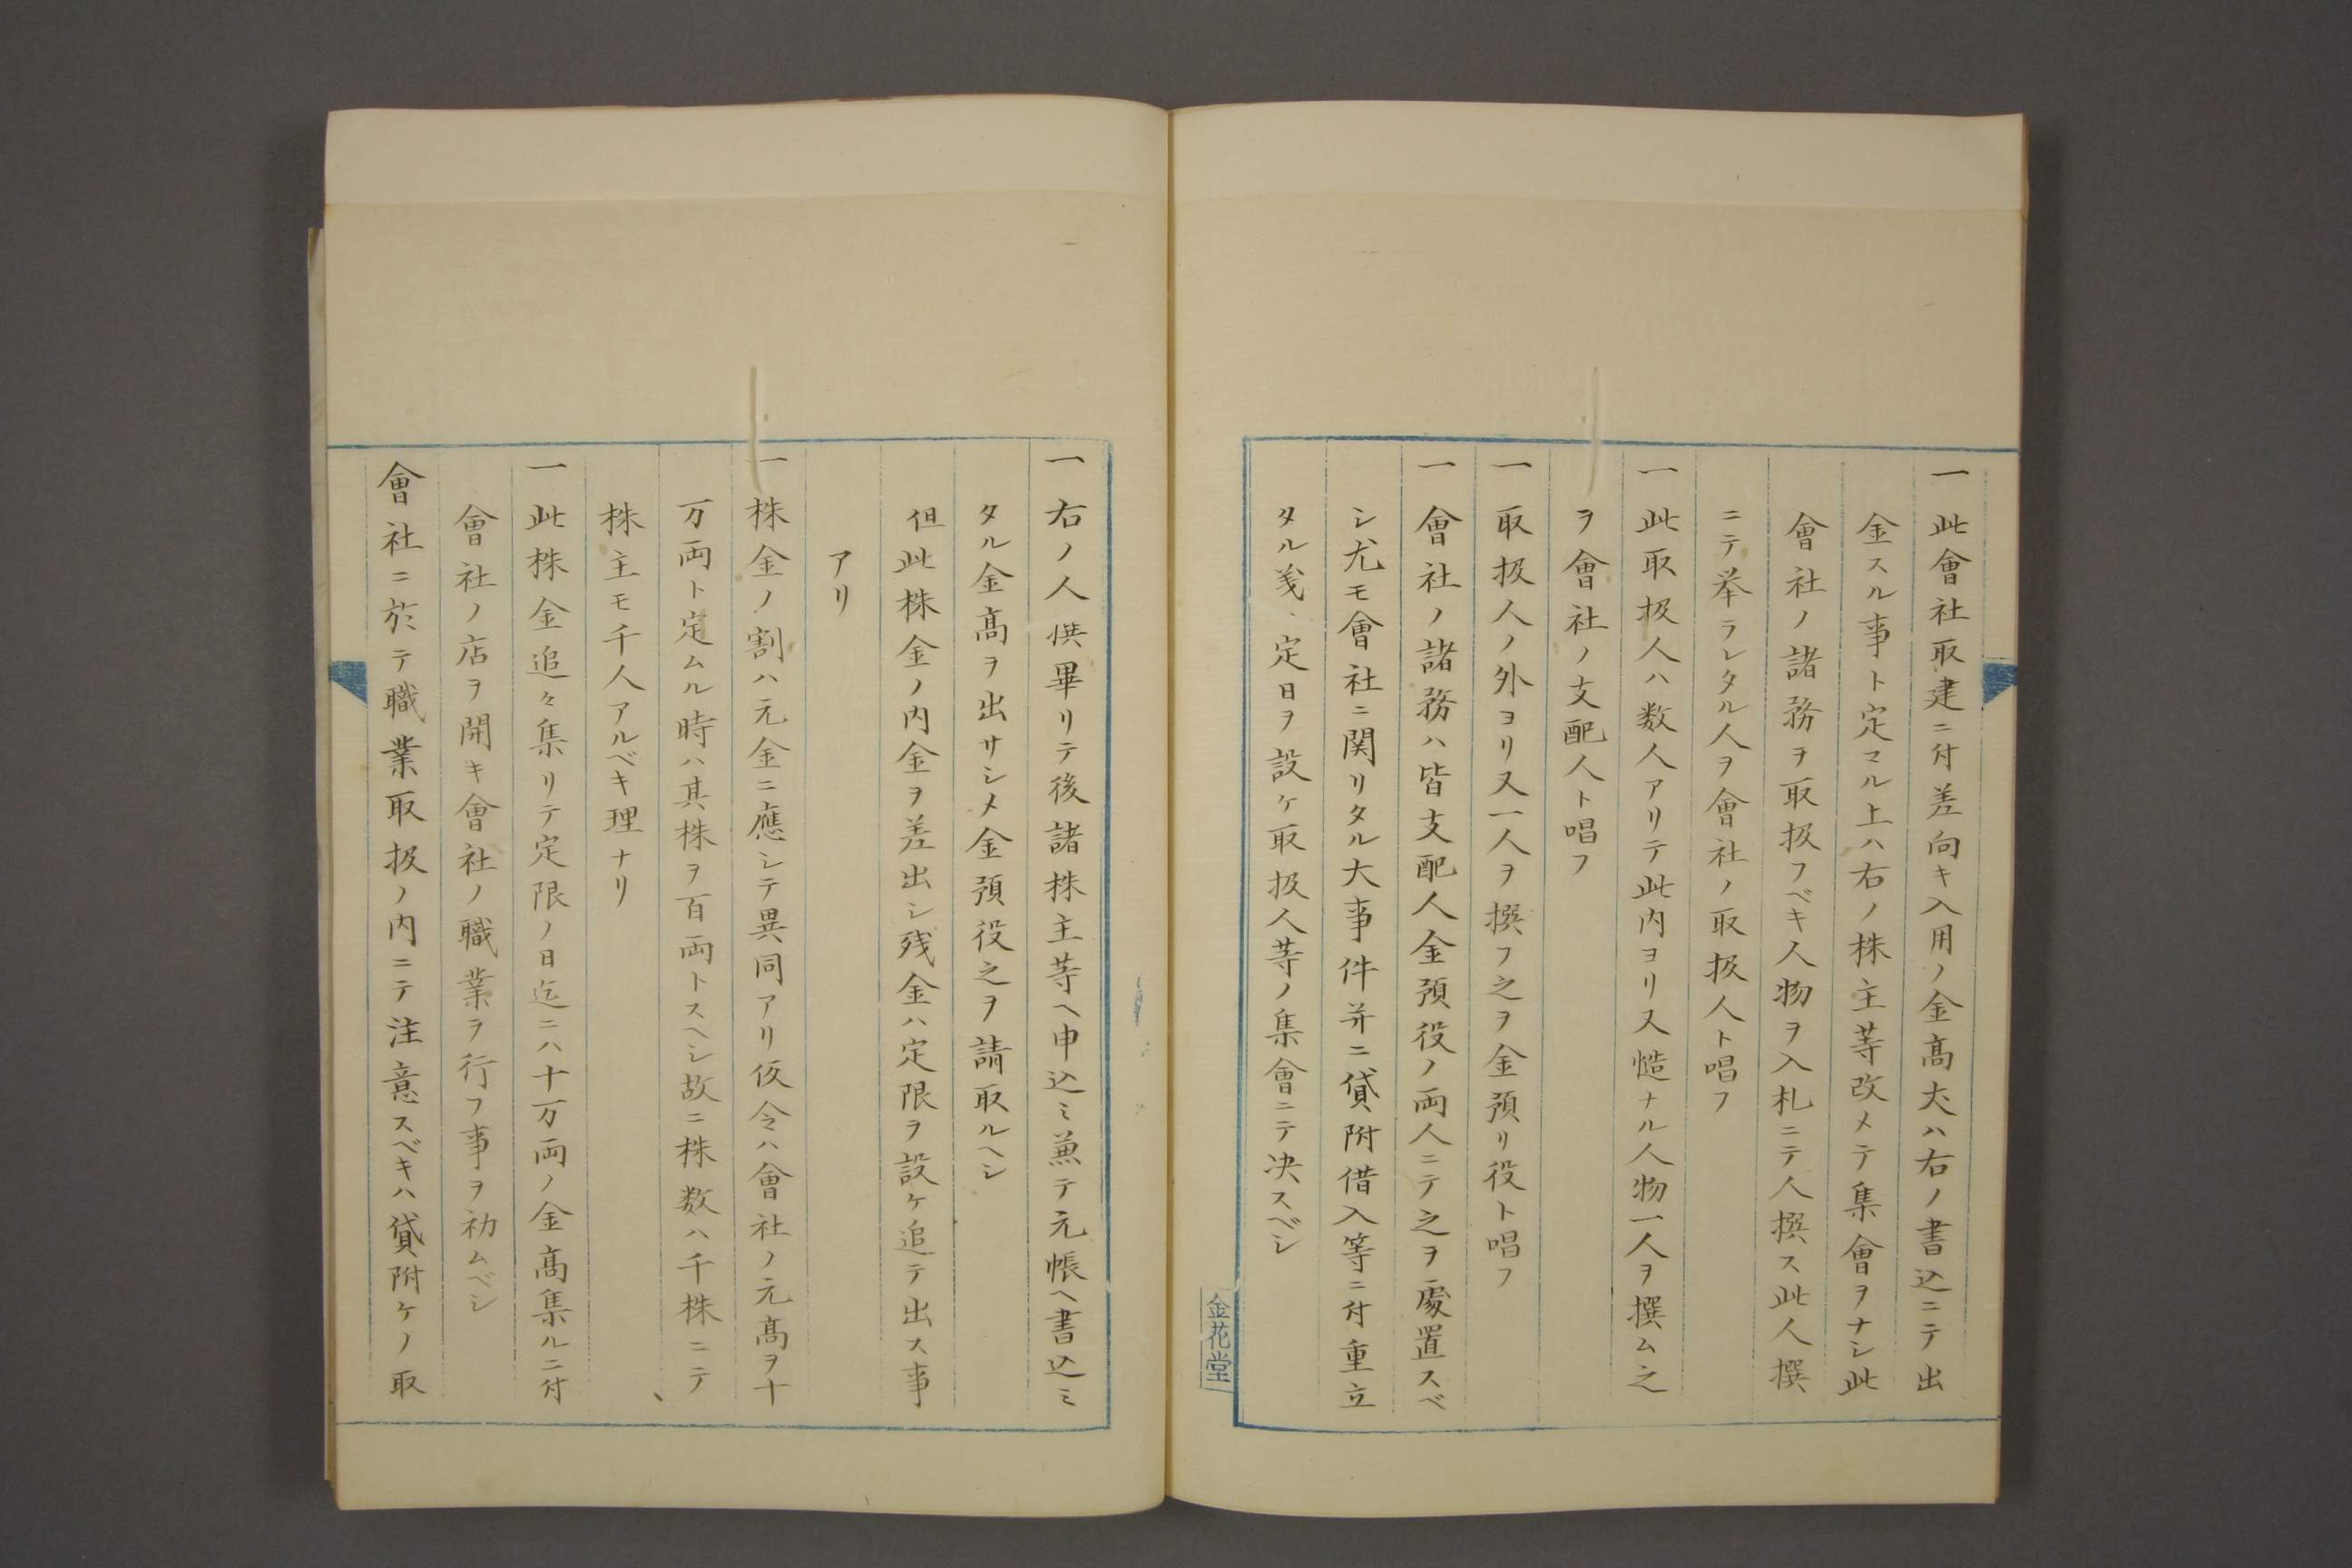 一此會社取建ニ付差向キ入用ノ金髙夫ハ右ノ書込ニテ出
金スル事ト定マル上ハ右ノ株主等改メテ集會ヲナシ此
會社ノ諸務ヲ取扱フベキ人物ヲ入札ニテ人撰ス此人撰
ニテ挙ラレタル人ヲ會社ノ取扱人ト唱フ
一此取扱人ハ数人アリテ此内ヨリ又慥ナル人物一人ヲ撰ム之
ヲ會社ノ支配人ト唱フ
一取扱人ノ外ヨリ又一人ヲ撰フ之ヲ金預リ役ト唱フ
一會社ノ諸務ハ皆支配人金預役ノ両人ニテ之ヲ處置スベ
シ尤モ會社ニ関リタル大事件并ニ貸附借入等ニ付重立
タル義、定日ヲ設ケ取扱人等ノ集會ニテ决スベシ
金花堂
一右ノ人撰畢リテ後諸株主等ヘ申込ミ兼テ元帳ヘ書込ミ
タル金髙ヲ出サシメ金預役之ヲ請取ルヘシ
但此株金ノ内金ヲ差出シ残金ハ定限ヲ設ケ追テ出ス事
アリ
一株金ノ割ハ元金ニ應シテ異同アリ仮令ハ會社ノ元髙ヲ十
万両ト定ムル時ハ其株ヲ百両トスヘシ故ニ株数ハ千株ニテ、
株主モ千人アルベキ理ナリ
一此株金追々集リテ定限ノ日迄ニハ十万両ノ金髙集ルニ付
會社ノ店ヲ開キ會社ノ職業ヲ行フ事ヲ初ムベシ
會社ニ於テ職業取扱ノ内ニテ注意スベキハ貸附ケノ取